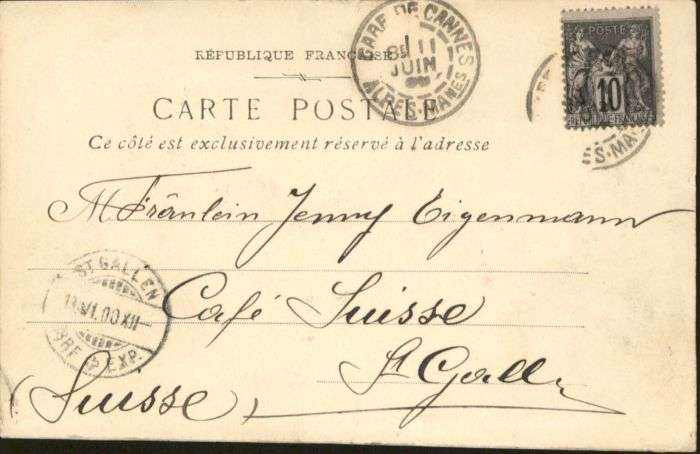 RÉPUBLIQUE FRANÇAISE
GARE DE CANNES
8E 11
JUIN
ALPES-MARMES
POSTE
10
REPUBLIQUE FRANCAISE
CARTE POSTALE
Ce côté est exclusivement réservé à l'adresse
M. Fräulein Jenny Eigenmann
Café Suisse
St Gallen
(Suisse)
ST GALLEN
VI.00 XII
BRF EXP.